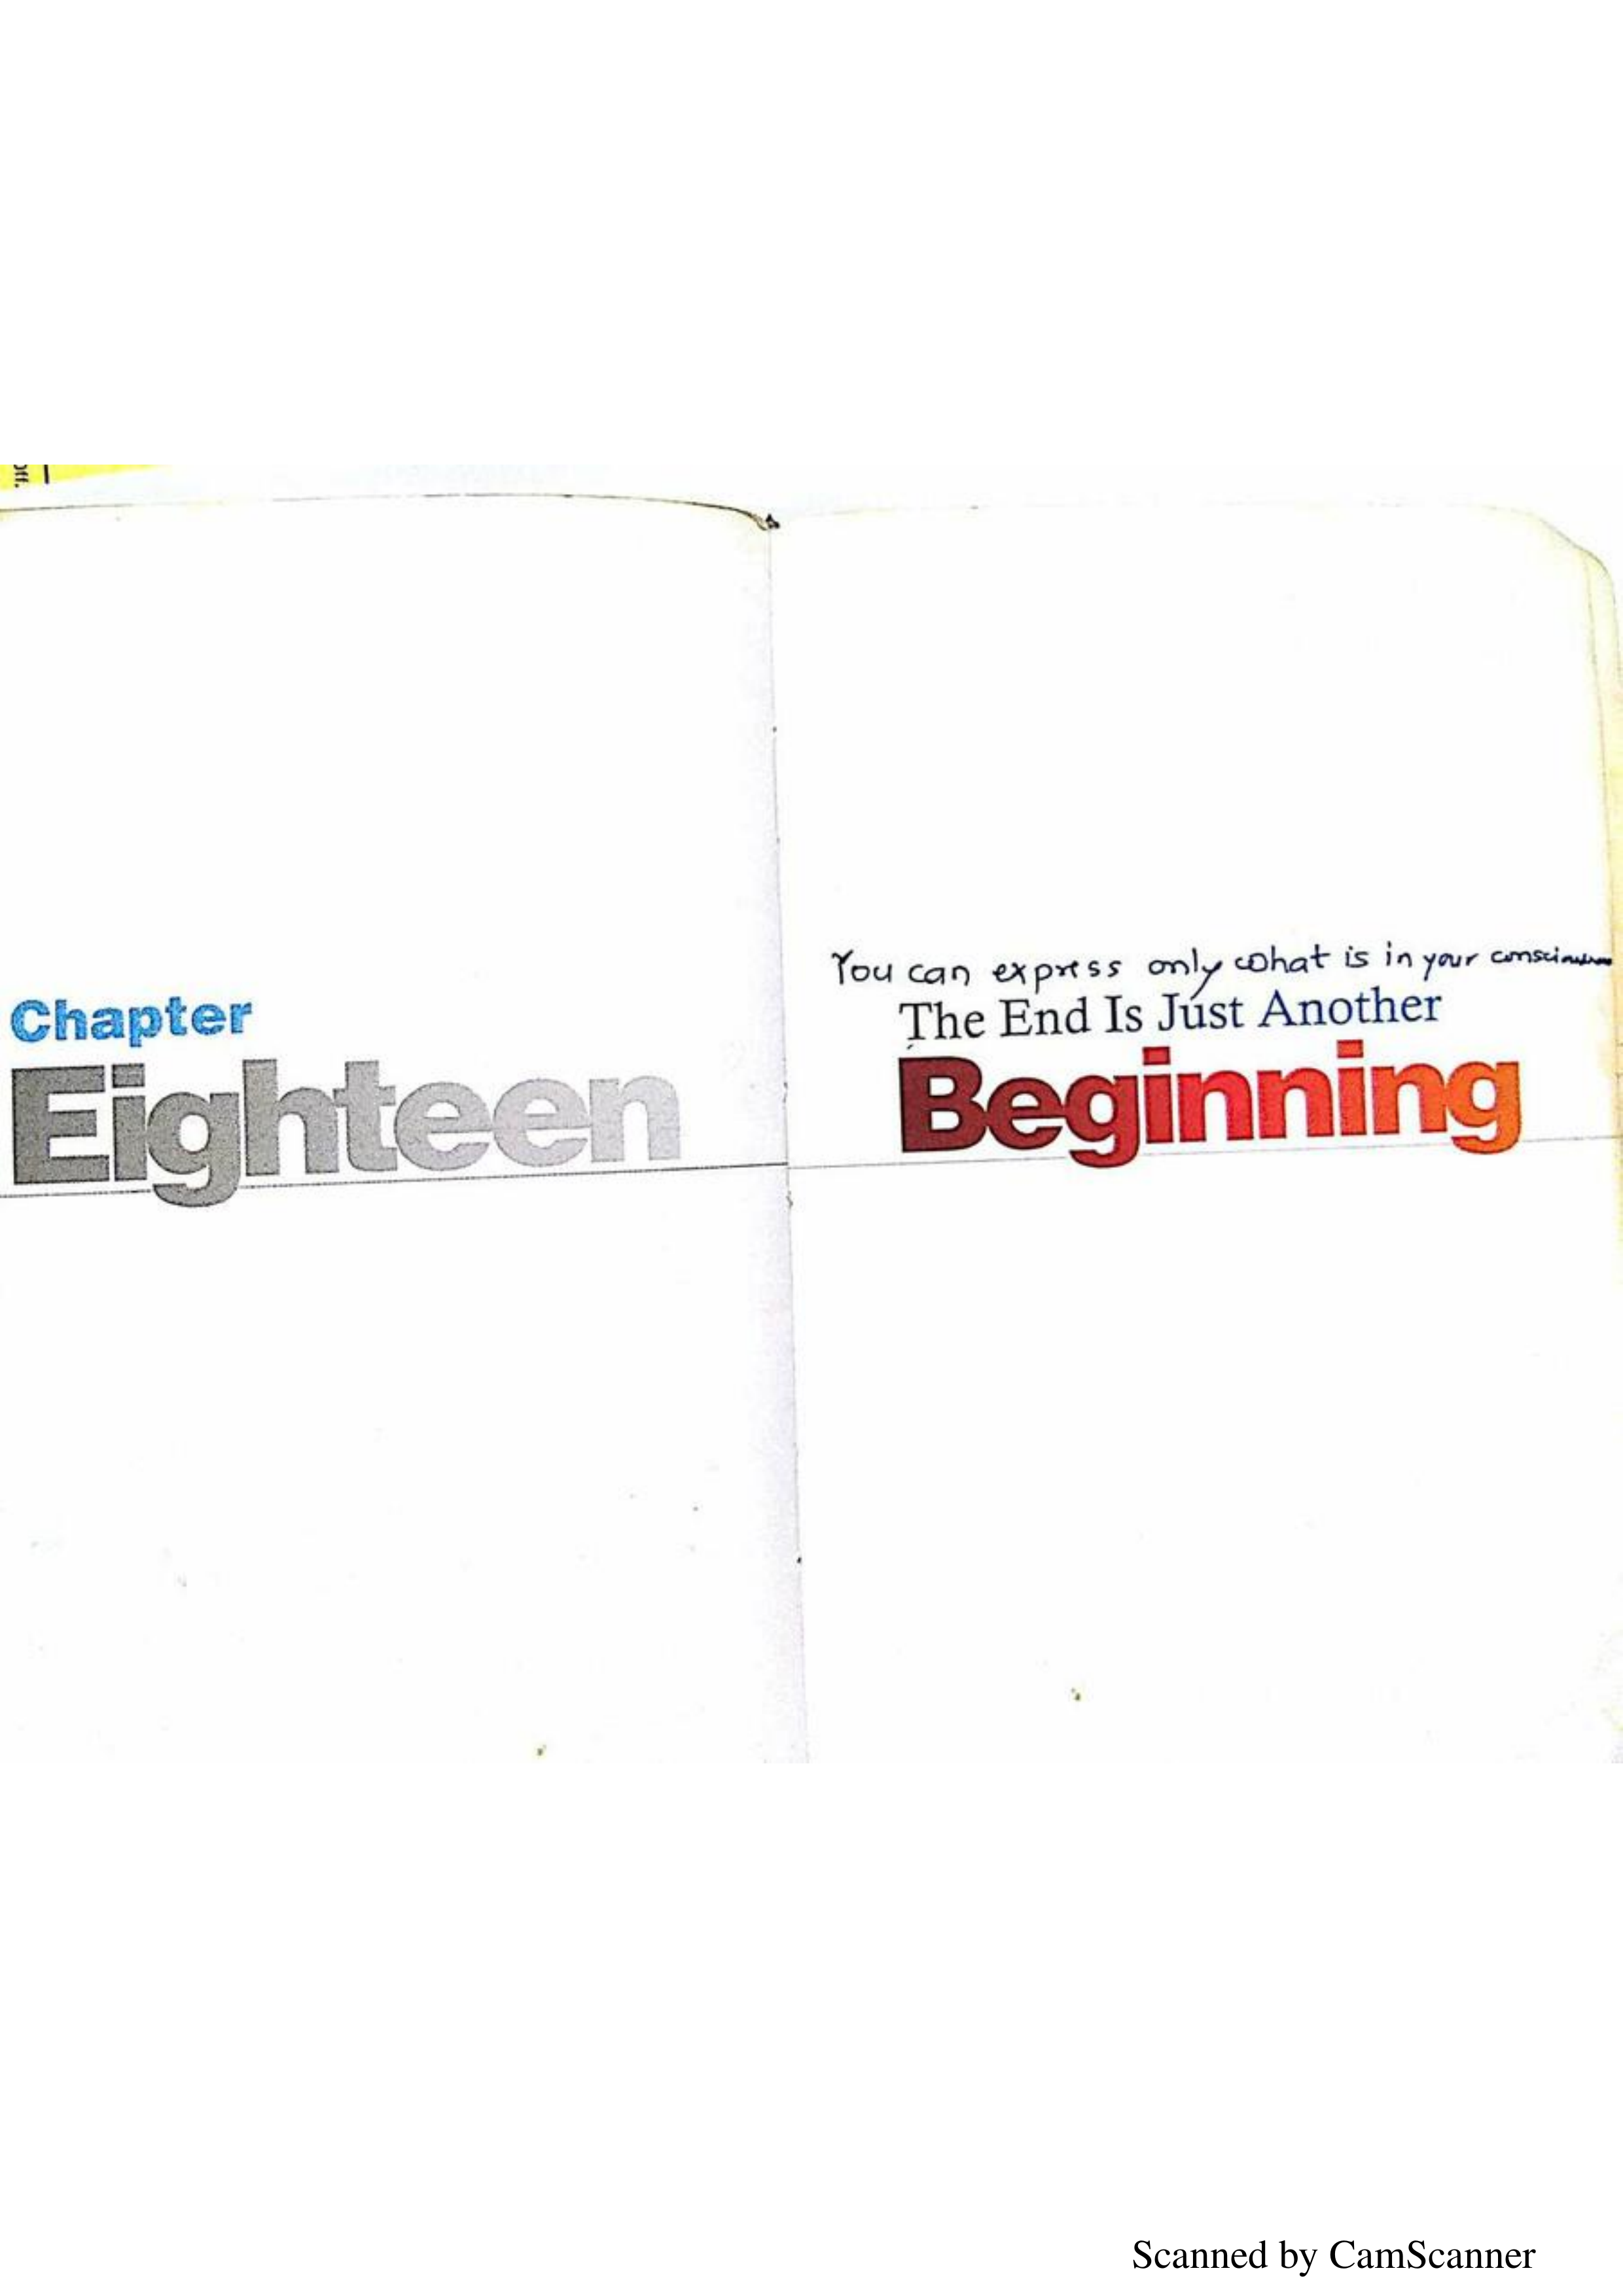 Chapter
Eighteen
You can express only what is in your
The End Is Just Another
Beginning
Scanned by CamScanner